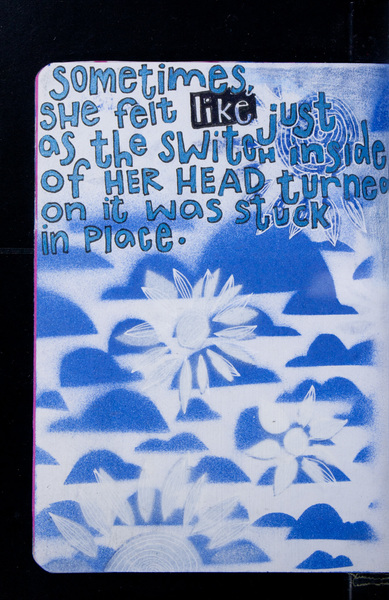 sometimes,
sHe felt like just
as the switch inside
of HER HEAD turned
on it was stuck
in Place.